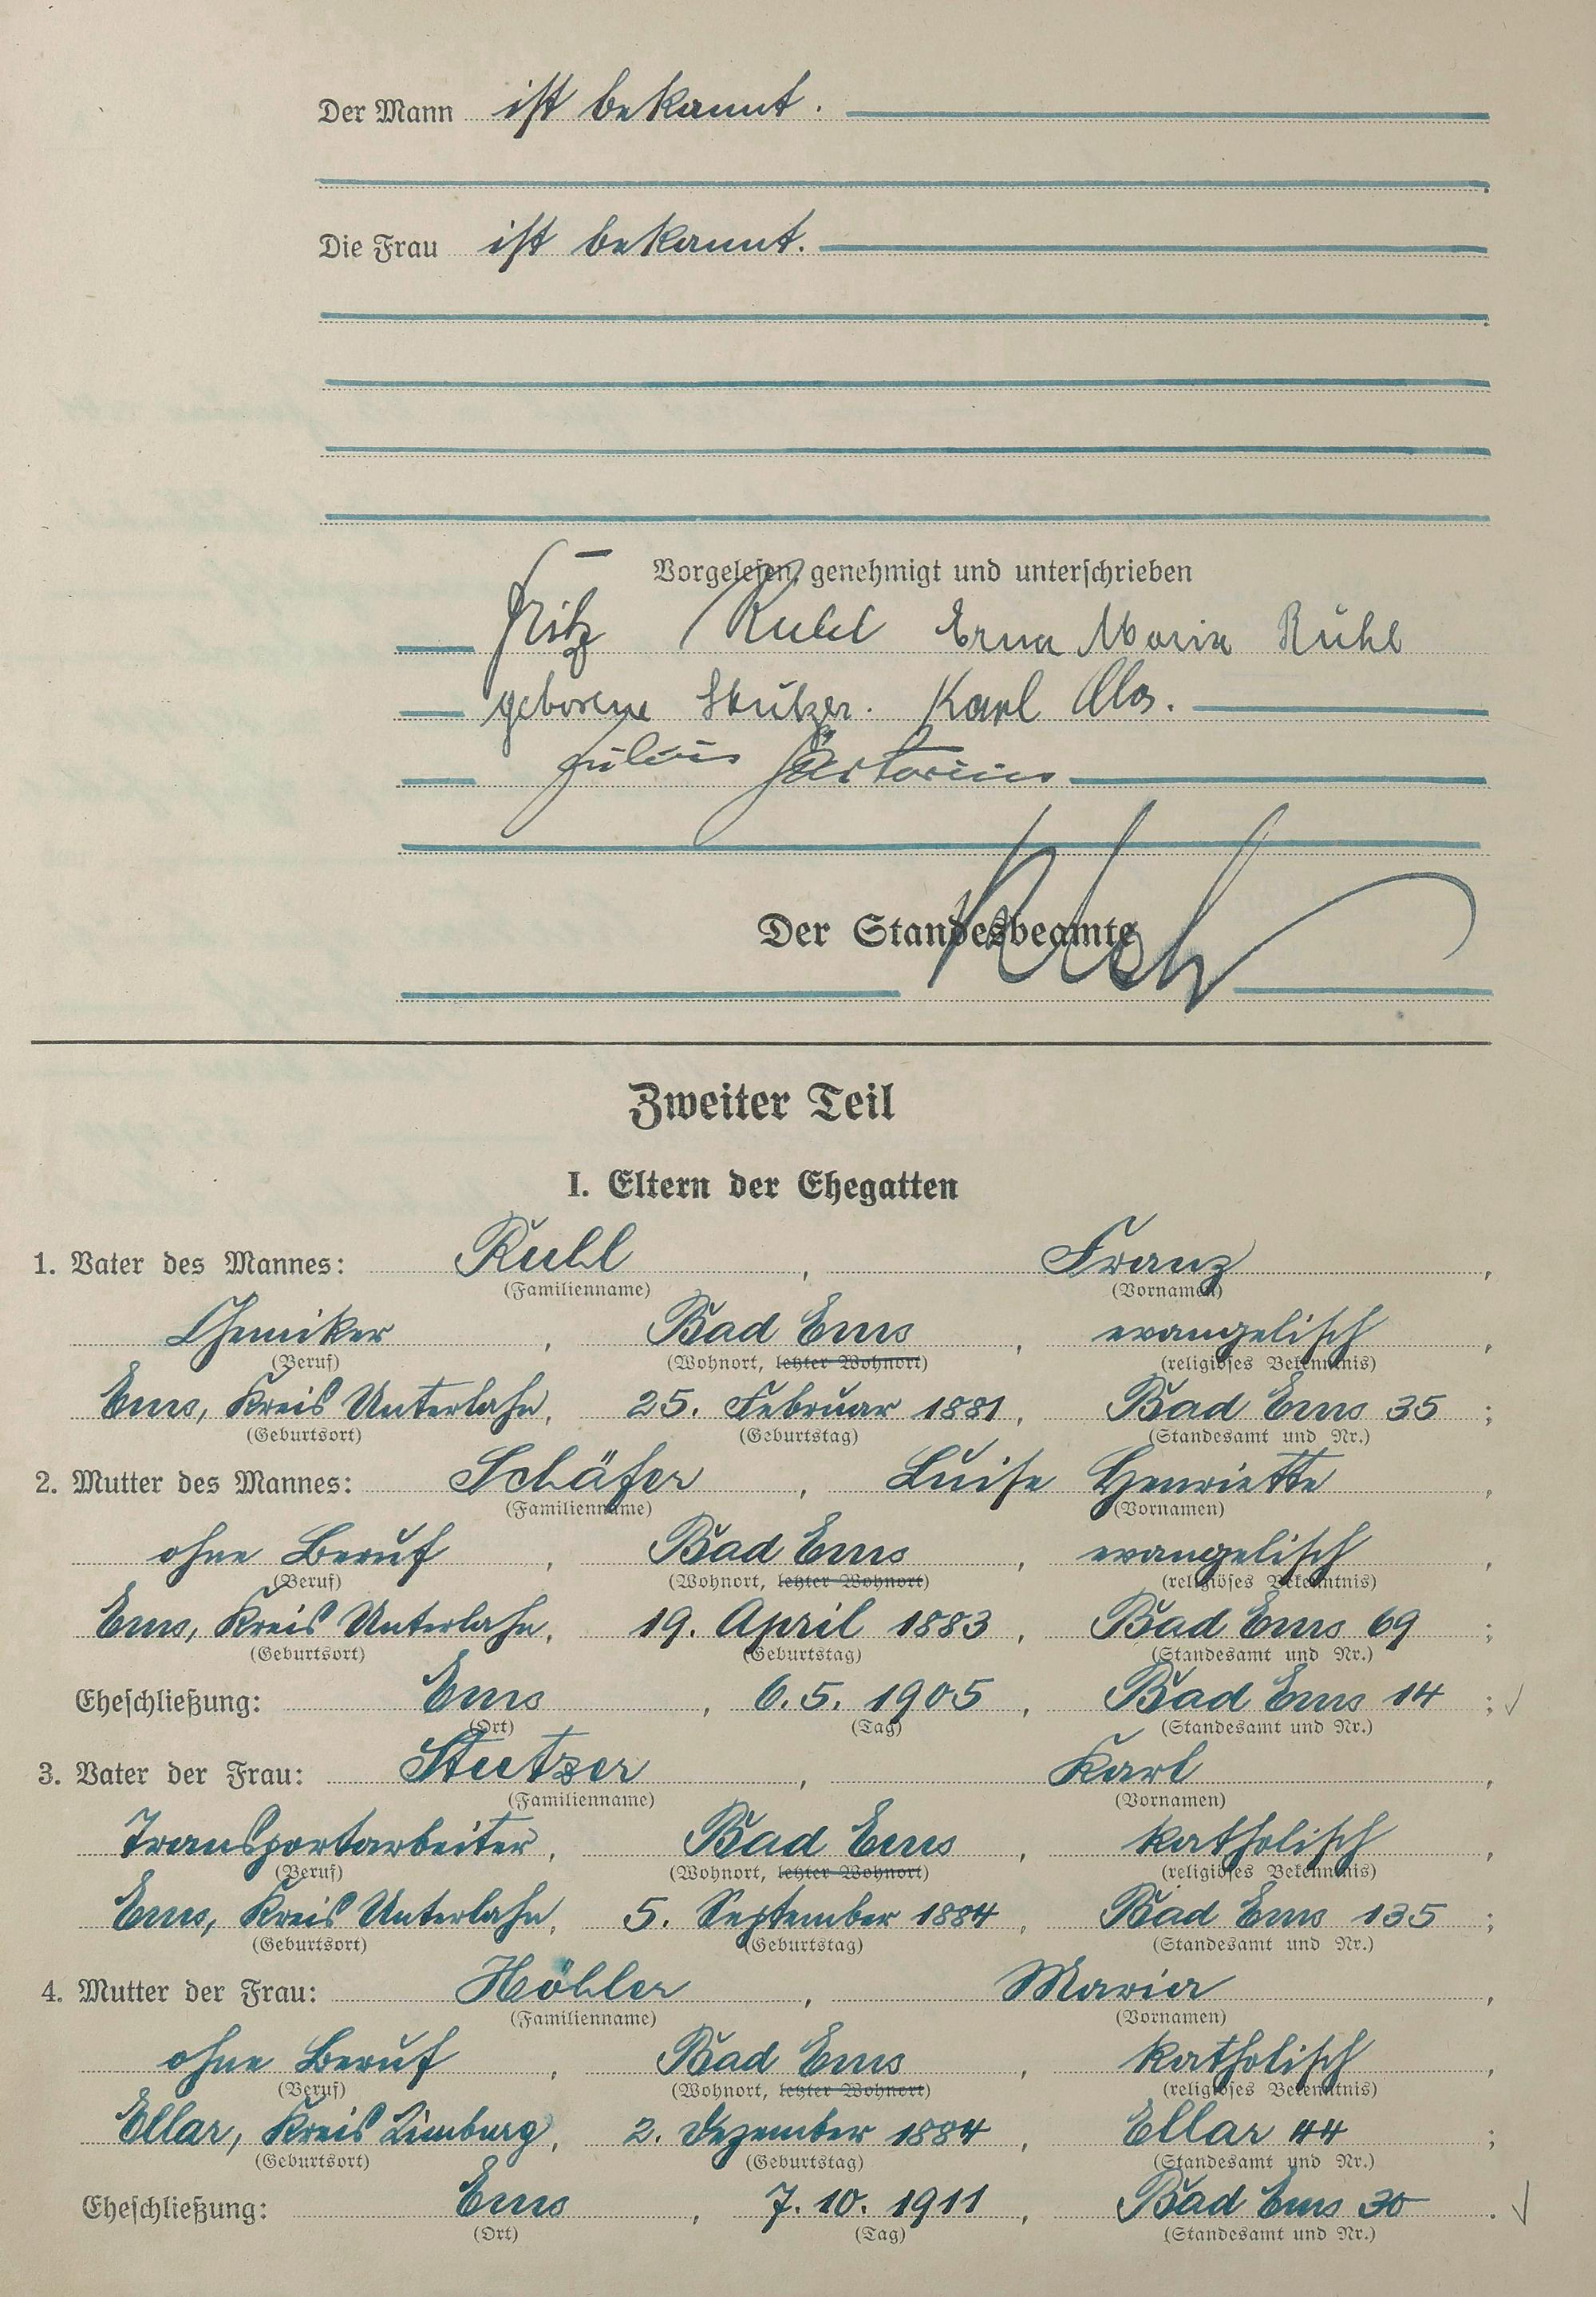 Der Mann ist bekannt.
Die Frau ist bekannt.
Vorgelesen, genehmigt und unterschrieben
Fritz Ruhl Erna Maria Rühl
geborene Stutzer. Karl
Julius Sartorius
Der Standesbeamte
Zweiter Teil
I. Eltern der Ehegatten
1. Vater des Mannes: Ruhl, Franz,
(Familienname) (Vornamen)
Chemiker, Bad Ems, evangelisch,
(Beruf) (Wohnort, letzter Wohnort) (religiöses Bekenntnis)
Ems, Kreis Unterlahn, 25. Februar 1881, Bad Ems 35;
(Geburtsort) (Geburtstag) (Standesamt und Nr.)
2. Mutter des Mannes: Schäfer, Luise Henriette,
(Familienname) (Vornamen)
ohne Beruf, Bad Ems, evangelisch,
(Beruf) (Wohnort, letzter Wohnort) (religiöses Bekenntnis)
Ems, Kreis Unterlahn, 19. April 1883, Bad Ems 69;
(Geburtsort) (Geburtstag) (Standesamt und Nr.)
Eheschließung: Ems, 6.5.1905, Bad Ems 14;
(Ort) (Tag) (Standesamt und Nr.)
3. Vater der Frau: Stutzer, Karl,
(Familienname) (Vornamen)
Transportarbeiter, Bad Ems, katholisch,
(Beruf) (Wohnort, letzter Wohnort) (religiöses Bekenntnis)
Ems, Kreis Unterlahn, 5. September 1884, Bad Ems 135;
(Geburtsort) (Geburtstag) (Standesamt und Nr.)
4. Mutter der Frau: Höhler, Maria,
(Familienname) (Vornamen)
ohne Beruf, Bad Ems, katholisch,
(Beruf) (Wohnort, letzter Wohnort) (religiöses Bekenntnis)
Ellar, Kreis Limburg, 2. Dezember 1884, Ellar 44;
(Geburtsort) (Geburtstag) (Standesamt und Nr.)
Eheschließung: Ems, 7.10.1911, Bad Ems 30.
(Ort) (Tag) (Standesamt und Nr.)